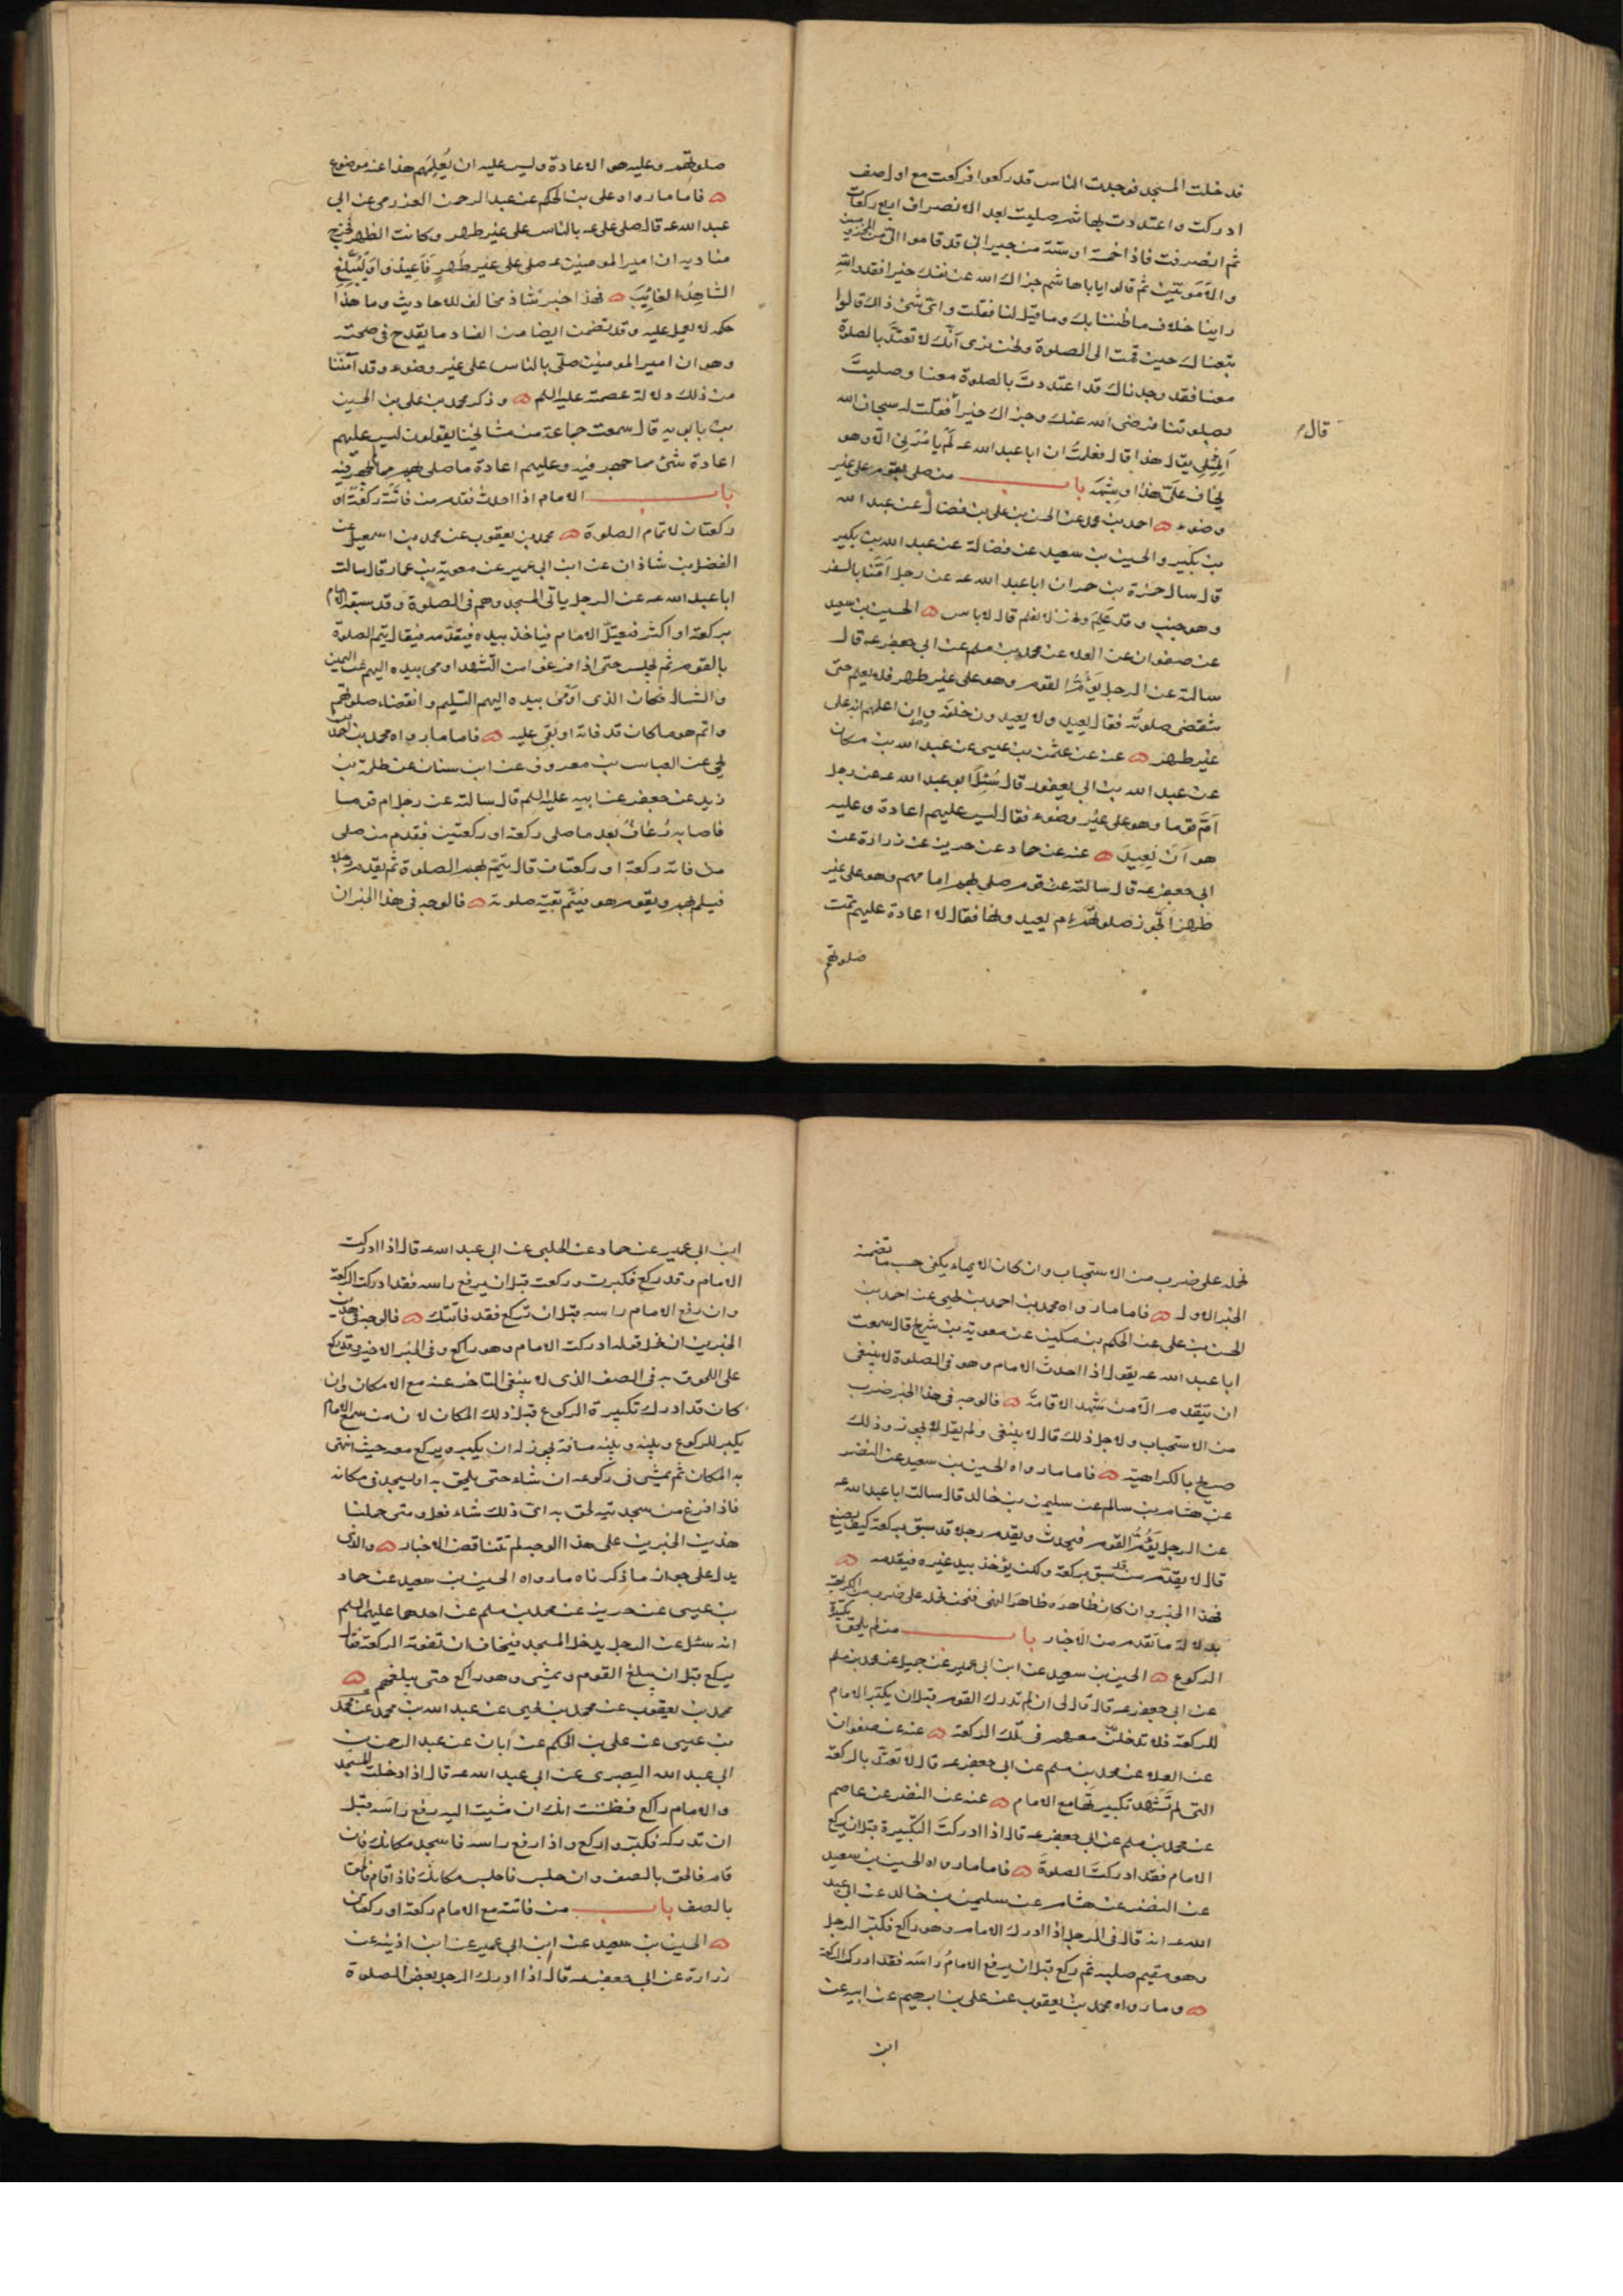 قد خلت المسجد فوجدت الناس قد ركعوا فركعت مع اول صف
ادركت واعتددت بها ثم صليت بعد الانصراف اربع ركعات
ثم انصرفت فاذا خمسة او ستة من جيراني قد قاموا الي من المخزوميين
والامويين ثم قالوا يا باهاشم جزاك الله عن نفسك خيرا فقد والله
راينا خلاف ما ظننا بك وما قيل لنا فقلت واي شئ ذاك قالوا
تبعناك حين قمت الى الصلوة ونحن نرى انك لا تعتد بالصلوة
معنا فقد وجدناك قد اعتددت بالصلوة معنا وصليت
بصلوتنا فرضي الله عنك وجزاك خيرا فقلت لهم سبحان الله
قال
ألمثلي يقال هذا قال فعلمت ان ابا عبد الله عـ لم يامرني الا وهو
يخاف على هذا وشبهه باب من صلى بقوم على غير
وضوء احمد بن محمد عن الحسن بن علي بن فضال عن عبد الله
بن بكير والحسين بن سعيد عن فضالة عن عبد الله بن بكير
قال سال حمزة بن حمران ابا عبد الله عـ عن رجل امنا بالسفر
وهو جنب وقد علم ونحن لا نعلم قال لا باس الحسين بن سعيد
عن صفوان عن العلا عن محمد بن مسلم عن ابي جعفر عـ قال
سالته عن الرجل يؤم القوم وهو على غير طهر فلا يعلم حتى
تنقضي صلوته فقال يعيد ولا يعيد من خلفه وان اعلمهم انه على
غير طهر عنه عن عثمن بن عيسى عن عبد الله بن مسكان
عن عبد الله بن ابي يعفور قال سئل ابو عبد الله عـ عن رجل
ام قوما وهو على غير وضوء فقال ليس عليهم اعادة وعليه
هو ان يعيد عنه عن حماد عن حريز عن زرارة عن
ابي جعفر عـ قال سالته عن قوم صلى بهم امامهم وهو على غير
طهر اتجوز صلوتهم ام يعيدونها فقال لا اعادة عليهم تمت
صلوتهم
صلوتهم وعليه هو الاعادة وليس عليه ان يعلمهم هذا عنه موضوع
فاما ما رواه علي بن الحكم عن عبد الرحمن العزرمي عن ابي
عبد الله عـ قال صلى علي عـ بالناس على غير طهر وكانت الظهر فخرج
مناديه ان امير المومنين عـ صلى على غير طهر فاعيدوا وليبلغ
الشاهد الغائب فهذا خبر شاذ مخالف للاحاديث وما هذا
حكمه لا يعمل عليه وقد تضمن ايضا من الفساد ما يقدح في صحته
وهو ان امير المومنين صلى بالناس على غير وضوء وقد آمننا
من ذلك دلالة عصمته عليه السلم وذكر محمد بن علي بن الحسين
بن بابويه قال سمعت جماعة من مشايخنا يقولون ليس عليهم
اعادة شئ مما جهر فيه وعليهم اعادة ما صلى بهم مما لم يجهر فيه
باب الامام اذا احدث فقدم من فاتته ركعة او
ركعتان لاتمام الصلوة محمد بن يعقوب عن محمد بن اسمعيل عن
الفضل بن شاذان عن ابن ابي عمير عن معوية بن عمار قال سالت
ابا عبد الله عـ عن الرجل ياتي المسجد وهم في الصلوة وقد سبقه الامام
بركعة او اكثر فيعتل الامام فياخذ بيده فيقدمه فيقال يتم الصلوة
بالقوم ثم يجلس حتى اذا فرغوا من التشهد اومى بيده اليهم عن اليمين
والشمال فكان الذي اومى بيده اليهم التسليم وانقضاء صلوتهم
واتم هو ما كان قد فاته او بقي عليه فاما ما رواه محمد بن احمد بن
يحيى عن العباس بن معروف عن ابن سنان عن طلحة بن
زيد عن جعفر عن ابيه عليه السلم قال سالته عن رجل ام قوما
فاصابه رعاف بعد ما صلى ركعة او ركعتين فقدم من صلى
من فاته ركعة او ركعتان قال يتم بهم الصلوة ثم يقدم رجلا
فيسلم بهم ويقوم هو فيتم بقية صلوته فالوجه في هذا الخبر ان
نحمله على ضرب من الاستحباب وان كان الايماء يكفي حسب ما تضمنه
الخبر الاول فاما ما رواه محمد بن احمد بن يحيى عن احمد بن
الحسن بن علي عن الحكم بن مسكين عن معوية بن شريح قال سمعت
ابا عبد الله عـ يقول اذا احدث الامام وهو في الصلوة لا ينبغي
ان يتقدم الا من شهد الاقامة فالوجه في هذا الخبر ضرب
من الاستحباب ولاجل ذلك قال لا ينبغي ولم يقل لا يجوز وذلك
صريح بالكراهية فاما ما رواه الحسين بن سعيد عن النضر
عن هشام بن سالم عن سليمن بن خالد قال سالت ابا عبد الله عـ
عن الرجل يؤم القوم فيحدث ويقدم رجلا قد سبق بركعة كيف يصنع
قال لا يقدم من قد سبق بركعة ولكن يؤخذ بيد غيره فيقدمه
فهذا الخبر وان كان ظاهره ظاهر النهي فنحن نحمله على ضرب من الكراهية
بدلالة ما تقدم من الاخبار باب من لم يلحق تكبيرة
الركوع الحسين بن سعيد عن ابن ابي عمير عن جميل عن محمد بن مسلم
عن ابي جعفر عـ قال قال لي ان لم تدرك القوم قبل ان يكبر الامام
للركعة فلا تدخلن معهم في تلك الركعة عنه عن صفوان
عن العلا عن محمد بن مسلم عن ابي جعفر عـ قال لا تعتد بالركعة
التي لم تشهد تكبيرتها مع الامام عنه عن النضر عن عاصم
عن محمد بن مسلم عن ابي جعفر عـ قال اذا ادركت التكبيرة قبل ان يركع
الامام فقد ادركت الصلوة فاما ما رواه الحسين بن سعيد
عن النضر عن هشام عن سليمن بن خالد عن ابي عبد
الله عـ انه قال في الرجل اذا ادرك الامام وهو راكع فكبر الرجل
وهو مقيم صلبه ثم ركع قبل ان يرفع الامام راسه فقد ادرك الركعة
وما رواه محمد بن يعقوب عن علي بن ابرهيم عن ابيه عن
ابن
ابن ابي عمير عن حماد عن الحلبي عن ابي عبد الله عـ قال اذا ادركت
الامام وقد ركع فكبرت وركعت قبل ان يرفع راسه فقد ادركت الركعة
وان رفع الامام راسه قبل ان تركع فقد فاتتك فالوجه في هذين
الخبرين ان نحمل قوله ادركت الامام وهو راكع وفي الخبر الاخير وقد ركع
على اللحوق به في الصف الذي لا ينبغي التاخر عنه مع الامكان وان
كان قد ادرك تكبيرة الركوع قبل ذلك المكان لان من سمع الامام
يكبر للركوع وبينه وبينه مسافة يجوز له ان يكبر ويركع معه حيث انتهى
به المكان ثم يمشي في ركوعه ان شاء حتى يلحق به او يسجد في مكانه
فاذا فرغ من سجدتيه لحق به اي ذلك شاء فعل ومتى حملنا
هذين الخبرين على هذا الوجه لم تتناقض الاخبار والذي
يدل على جواز ما ذكرناه ما رواه الحسين بن سعيد عن حماد
بن عيسى عن حريز عن محمد بن مسلم عن احدهما عليهما السلم
انه سئل عن الرجل يدخل المسجد فيخاف ان تفوته الركعة فقال
يركع قبل ان يبلغ القوم ويمشي وهو راكع حتى يبلغهم
محمد بن يعقوب عن محمد بن يحيى عن عبد الله بن محمد عن محمد
بن عيسى عن علي بن الحكم عن ابان عن عبد الرحمن بن
ابي عبد الله البصري عن ابي عبد الله عـ قال اذا دخلت المسجد
والامام راكع فظننت انك ان مشيت اليه رفع راسه قبل
ان تدركه فكبر واركع واذا رفع راسه فاسجد مكانك فان
قام فالحق بالصف وان جلس فاجلس مكانك فاذا قام فالحق
بالصف باب من فاتته مع الامام ركعة او ركعتان
الحسين بن سعيد عن ابن ابي عمير عن ابن اذينه عن
زرارة عن ابي جعفر عـ قال اذا ادرك الرجل بعض الصلوة